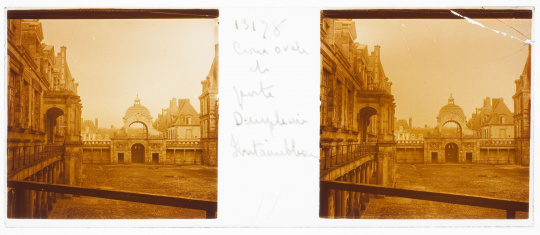 13178
Cour ovale
et
porte
Dauphine
Fontainebleau